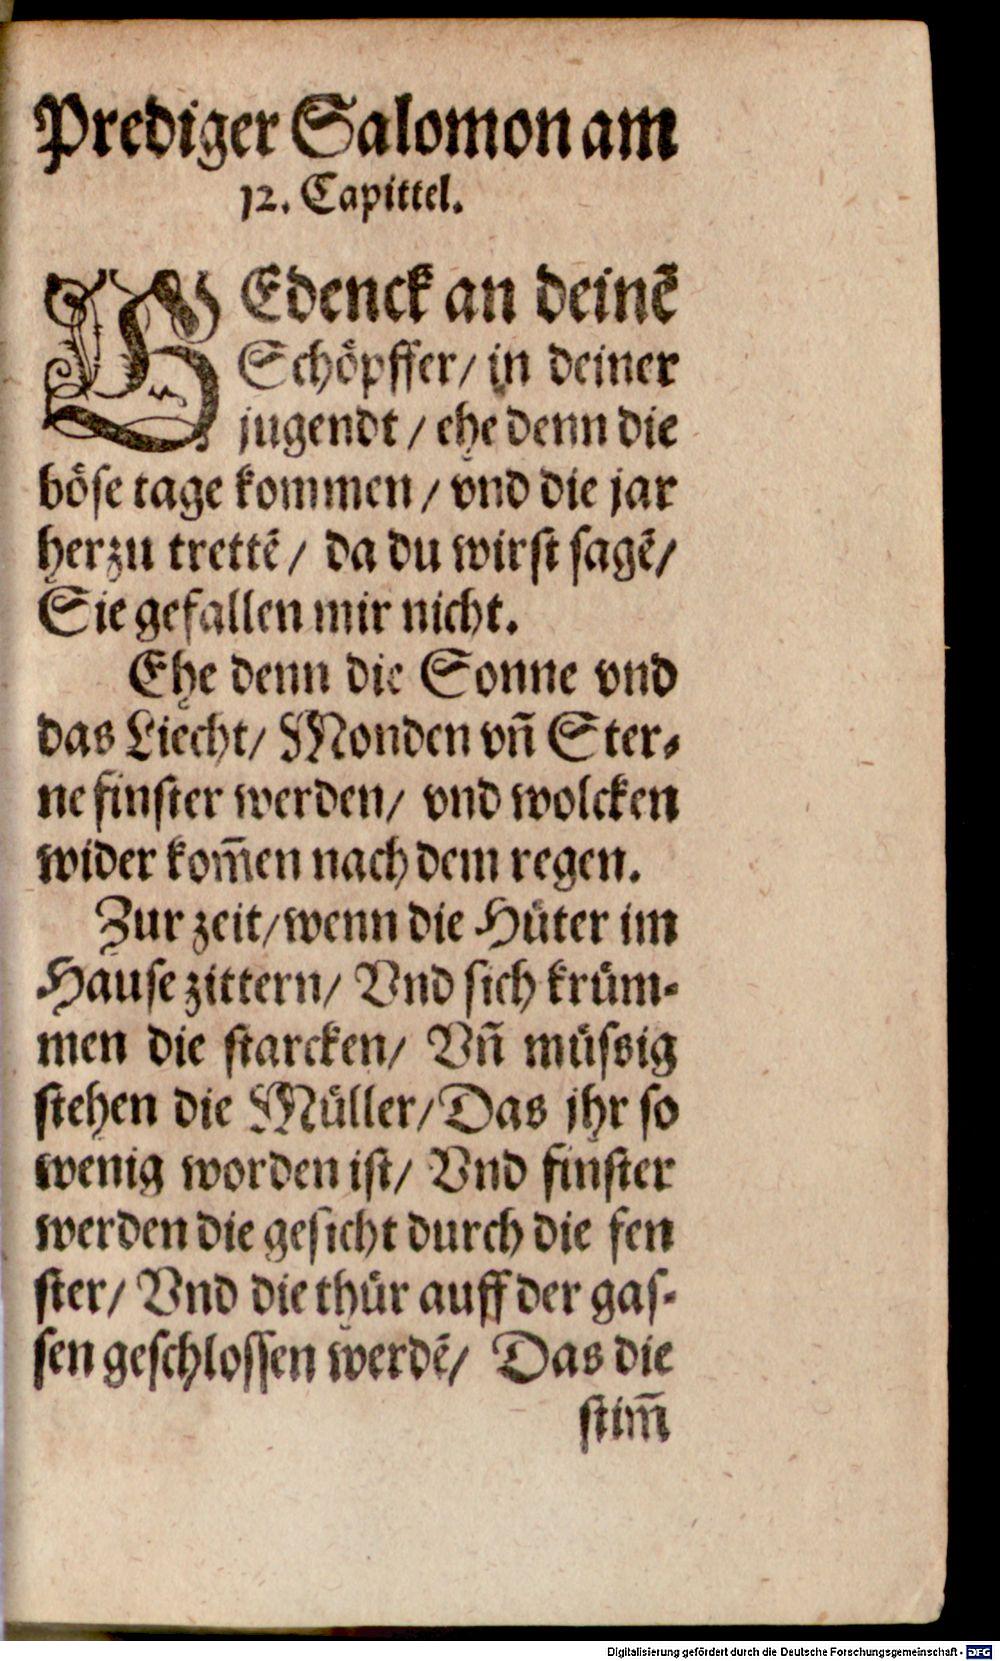 Prediger Salomon am
12. Capittel.
GEdenck an deinẽ
Schöpffer/ in deiner
jugendt / ehe denn die
böse tage kommen / vnd die jar
herzu trettẽ/ da du wirst sagẽ/
Sie gefallen mir nicht.
Ehe denn die Sonne vnd
das Liecht/ Monden vñ Ster⸗
ne finster werden/ vnd wolcken
wider kom̃en nach dem regen.
Zur zeit/wenn die Hüter im
Hause zittern/ Vnd sich krüm⸗
men die starcken/ Vñ müssig
stehen die Müller/Das jhr so
wenig worden ist/ Vnd finster
werden die gesicht durch die fen
ster/ Vnd die thür auff der gas⸗
sen geschlossen werdẽ/ Das die
stim̃
Digitalisierung gefördert durch die Deutsche Forschungsgemeinschaft - DFG